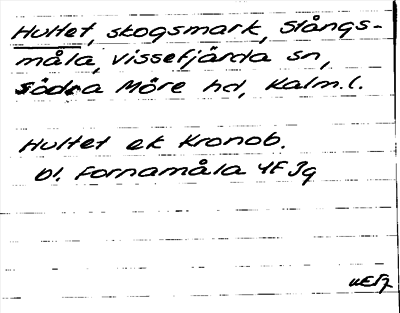 Hultet, skogsmark, Slångs-
måla, Vissefjärda sn,
Södra Möre hd, Kalm.l.
Hultet ek Kronob.
bl. Fornamåla 4F 3g